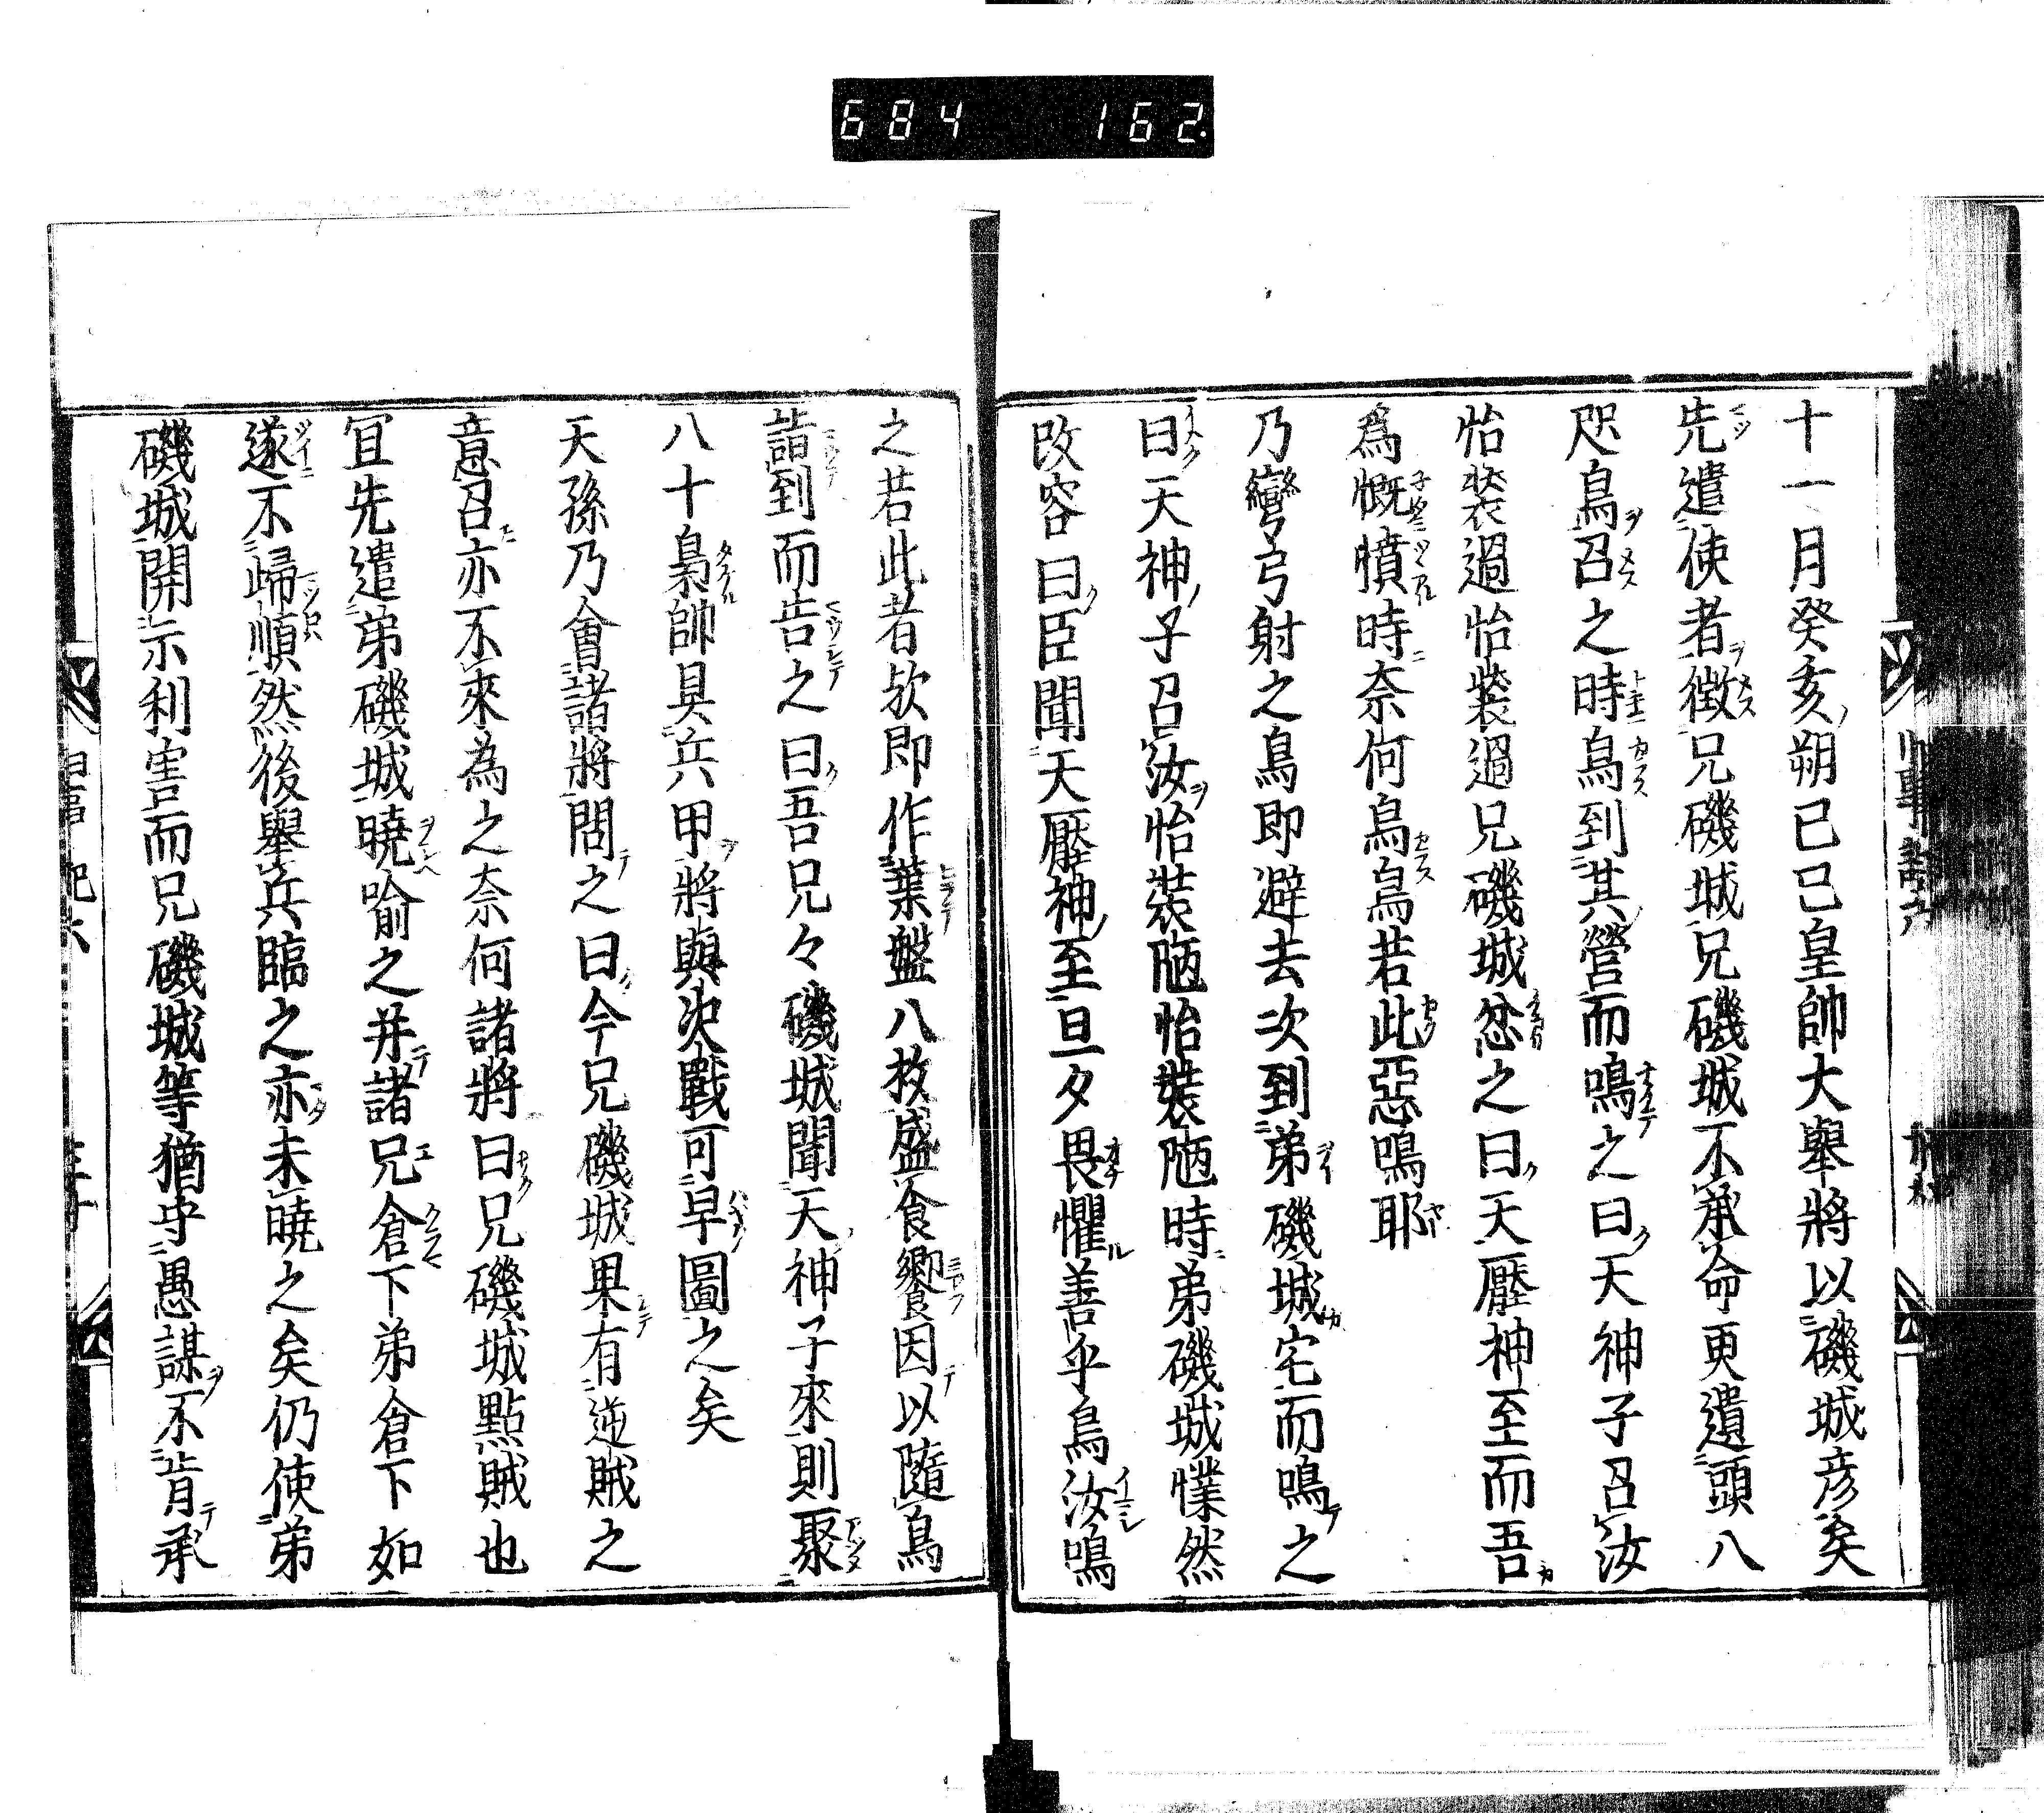 684 162.
十一月癸亥朔己巳皇帥大舉將以磯城彦矣
先遣使者徴兄磯城兄磯城不承命更遣頭八
咫烏召之時烏到其營而鳴之曰天神子召汝
怡装過怡装過兄磯城忿之曰天壓神至而吾
爲慨憤時奈何烏烏若此惡鳴耶
乃彎弓射之烏即避去次到弟磯城宅而鳴之
曰天神子召汝怡裝陋怡裝陋時弟磯城慄然
改容曰臣聞天壓神至旦夕畏懼善乎烏汝鳴
之若此者欤即作葉盤八枚盛食饗因以隨烏
詣到而告之曰吾兄々磯城聞天神子來則聚
八十梟帥具兵甲將與决戰可早圖之矣
天孫乃會諸將問之曰今兄磯城果有逆賊之
意召亦不來為之奈何諸將曰兄磯城點賊也
宜先遣弟磯城曉喻之并諸兄倉下弟倉下如
遂不歸順然後擧兵臨之亦未曉之矣仍使弟
磯城開示利害而兄磯城等猶守愚謀不肯承